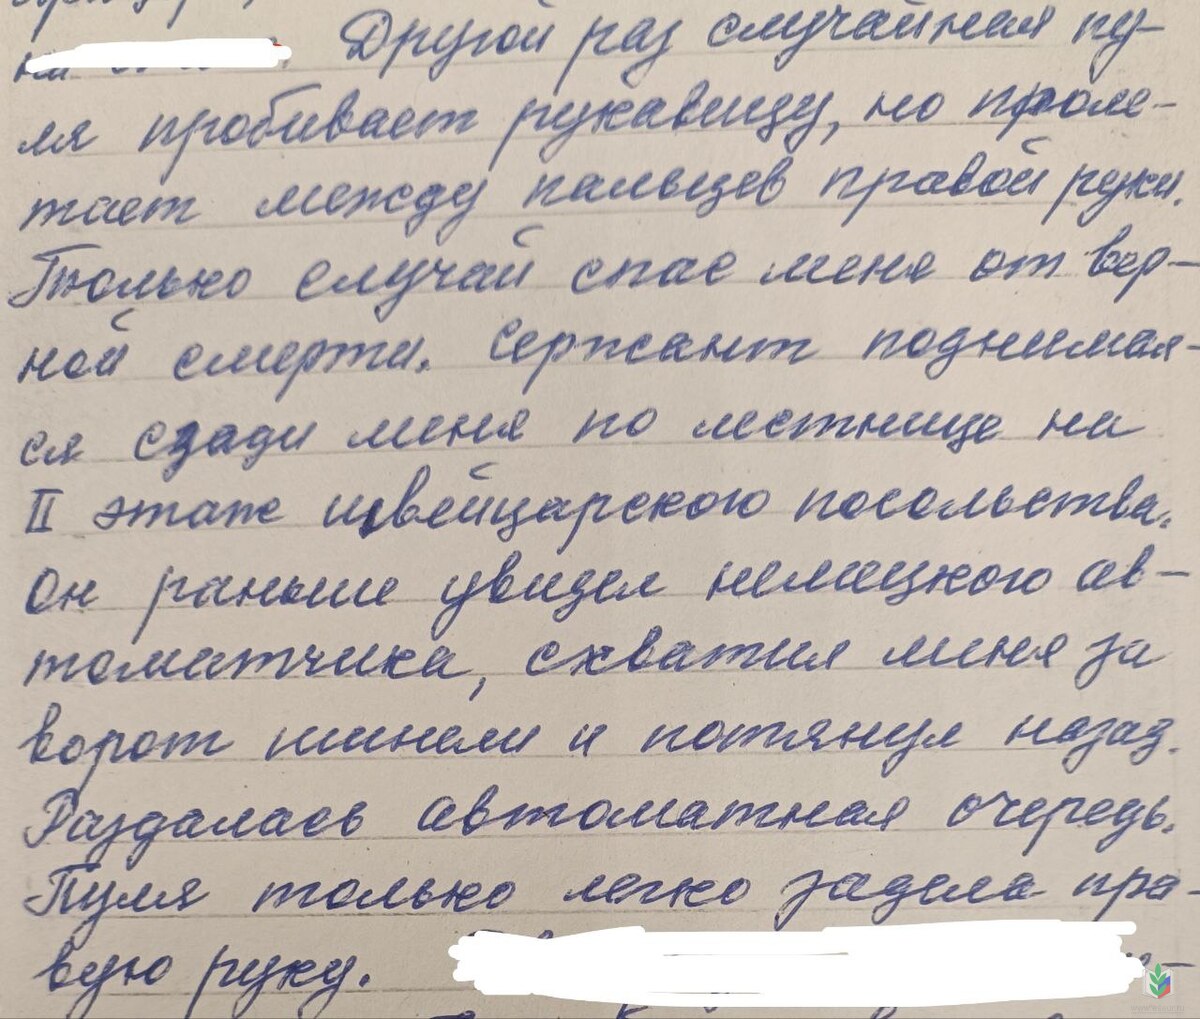 Другой раз случайная пу-
ля пробивает рукавицу, но проле-
тает между пальцев правой руки.
Только случай спас меня от вер-
ной смерти. Сержант поднимал-
ся сзади меня по лестнице на
II этаж швейцарского посольства.
Он раньше увидел немецкого ав-
томатчика, схватил меня за
ворот шинели и потянул назад.
Раздалась автоматная очередь.
Пуля только легко задела пра-
вую руку.